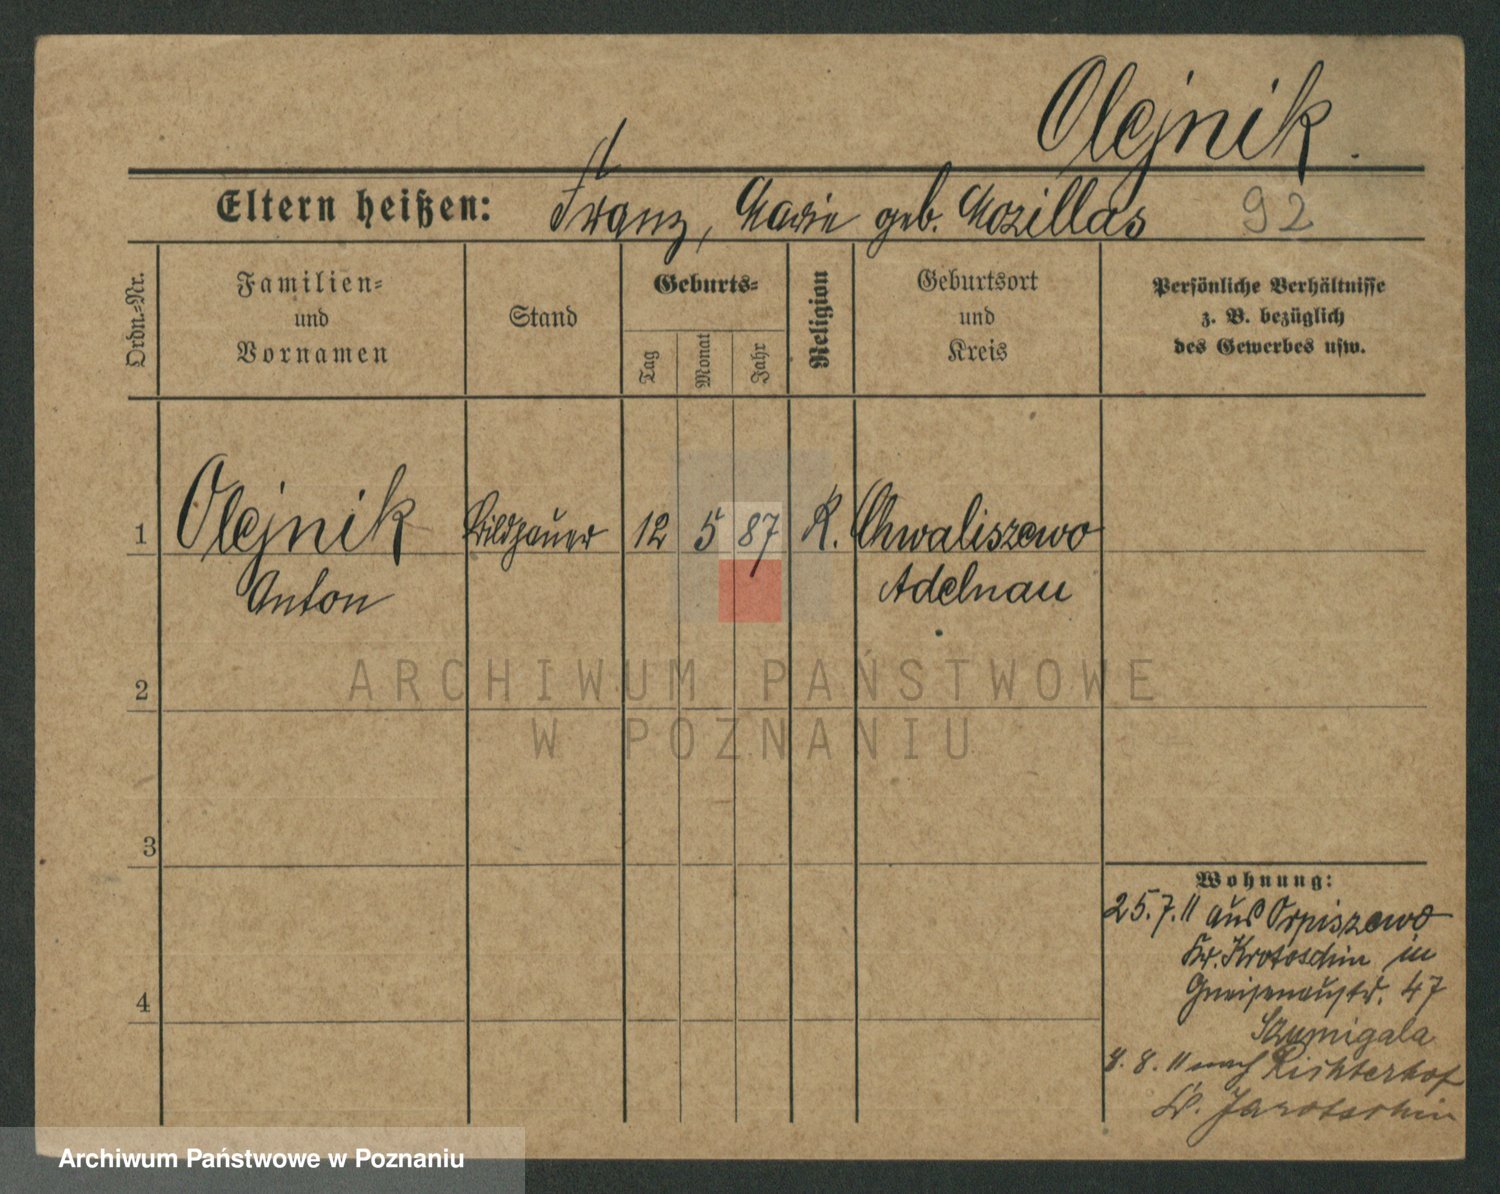 Olejnik.
Eltern heißen: Franz, Marie geb. Mozillas
92
Ordn.-Nr.
Familien-
und
Vornamen
Stand
Geburts-
Tag
Monat
Jahr
Religion
Geburtsort
und
Kreis
Persönliche Verhältnisse
z. B. bezüglich
des Gewerbes usw.
1 Olejnik Bildhauer 12 5 87 K. Chwaliszewo
Anton Adelnau
2
ARCHIWUM PAŃSTWOWE
W POZNANIU
3
Wohnung:
25.7.11 aus Orpiszewo
Kr. Krotoschin in
Gneisenaustr. 47
Szumigala
8. 11 nach
4
Kr. Jarotschin
Archiwum Państwowe w Poznaniu